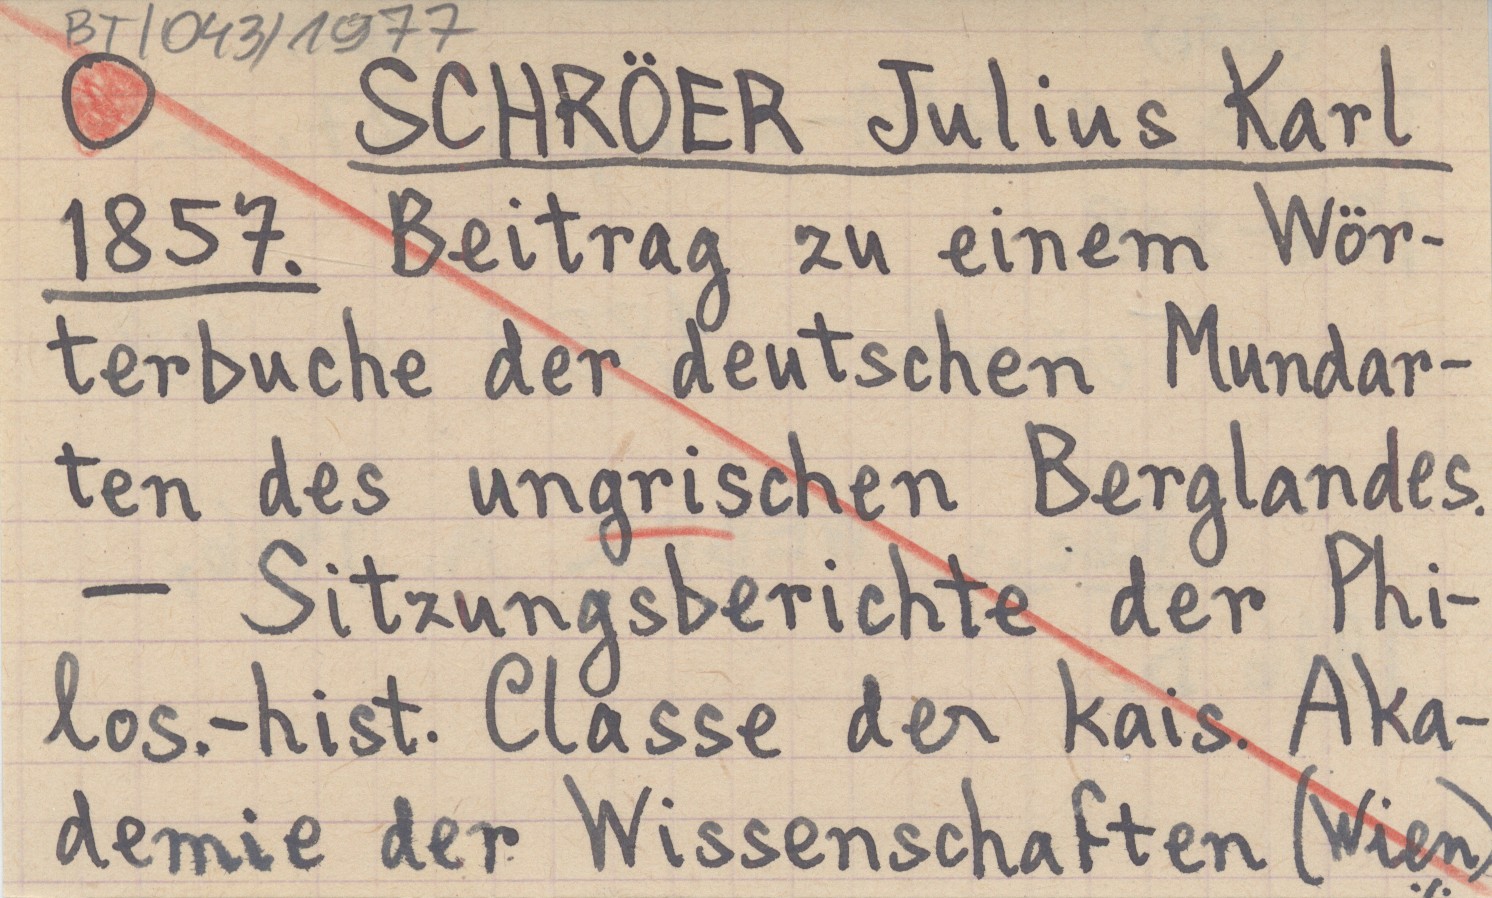 BT/043/1977
SCHRÖER Julius Karl
1857. Beitrag zu einem Wör-
terbuche der deutschen Mundar-
ten des ungrischen Berglandes.
— Sitzungsberichte der Phi-
los.-hist. Classe der kais. Aka-
demie der Wissenschaften (Wien)